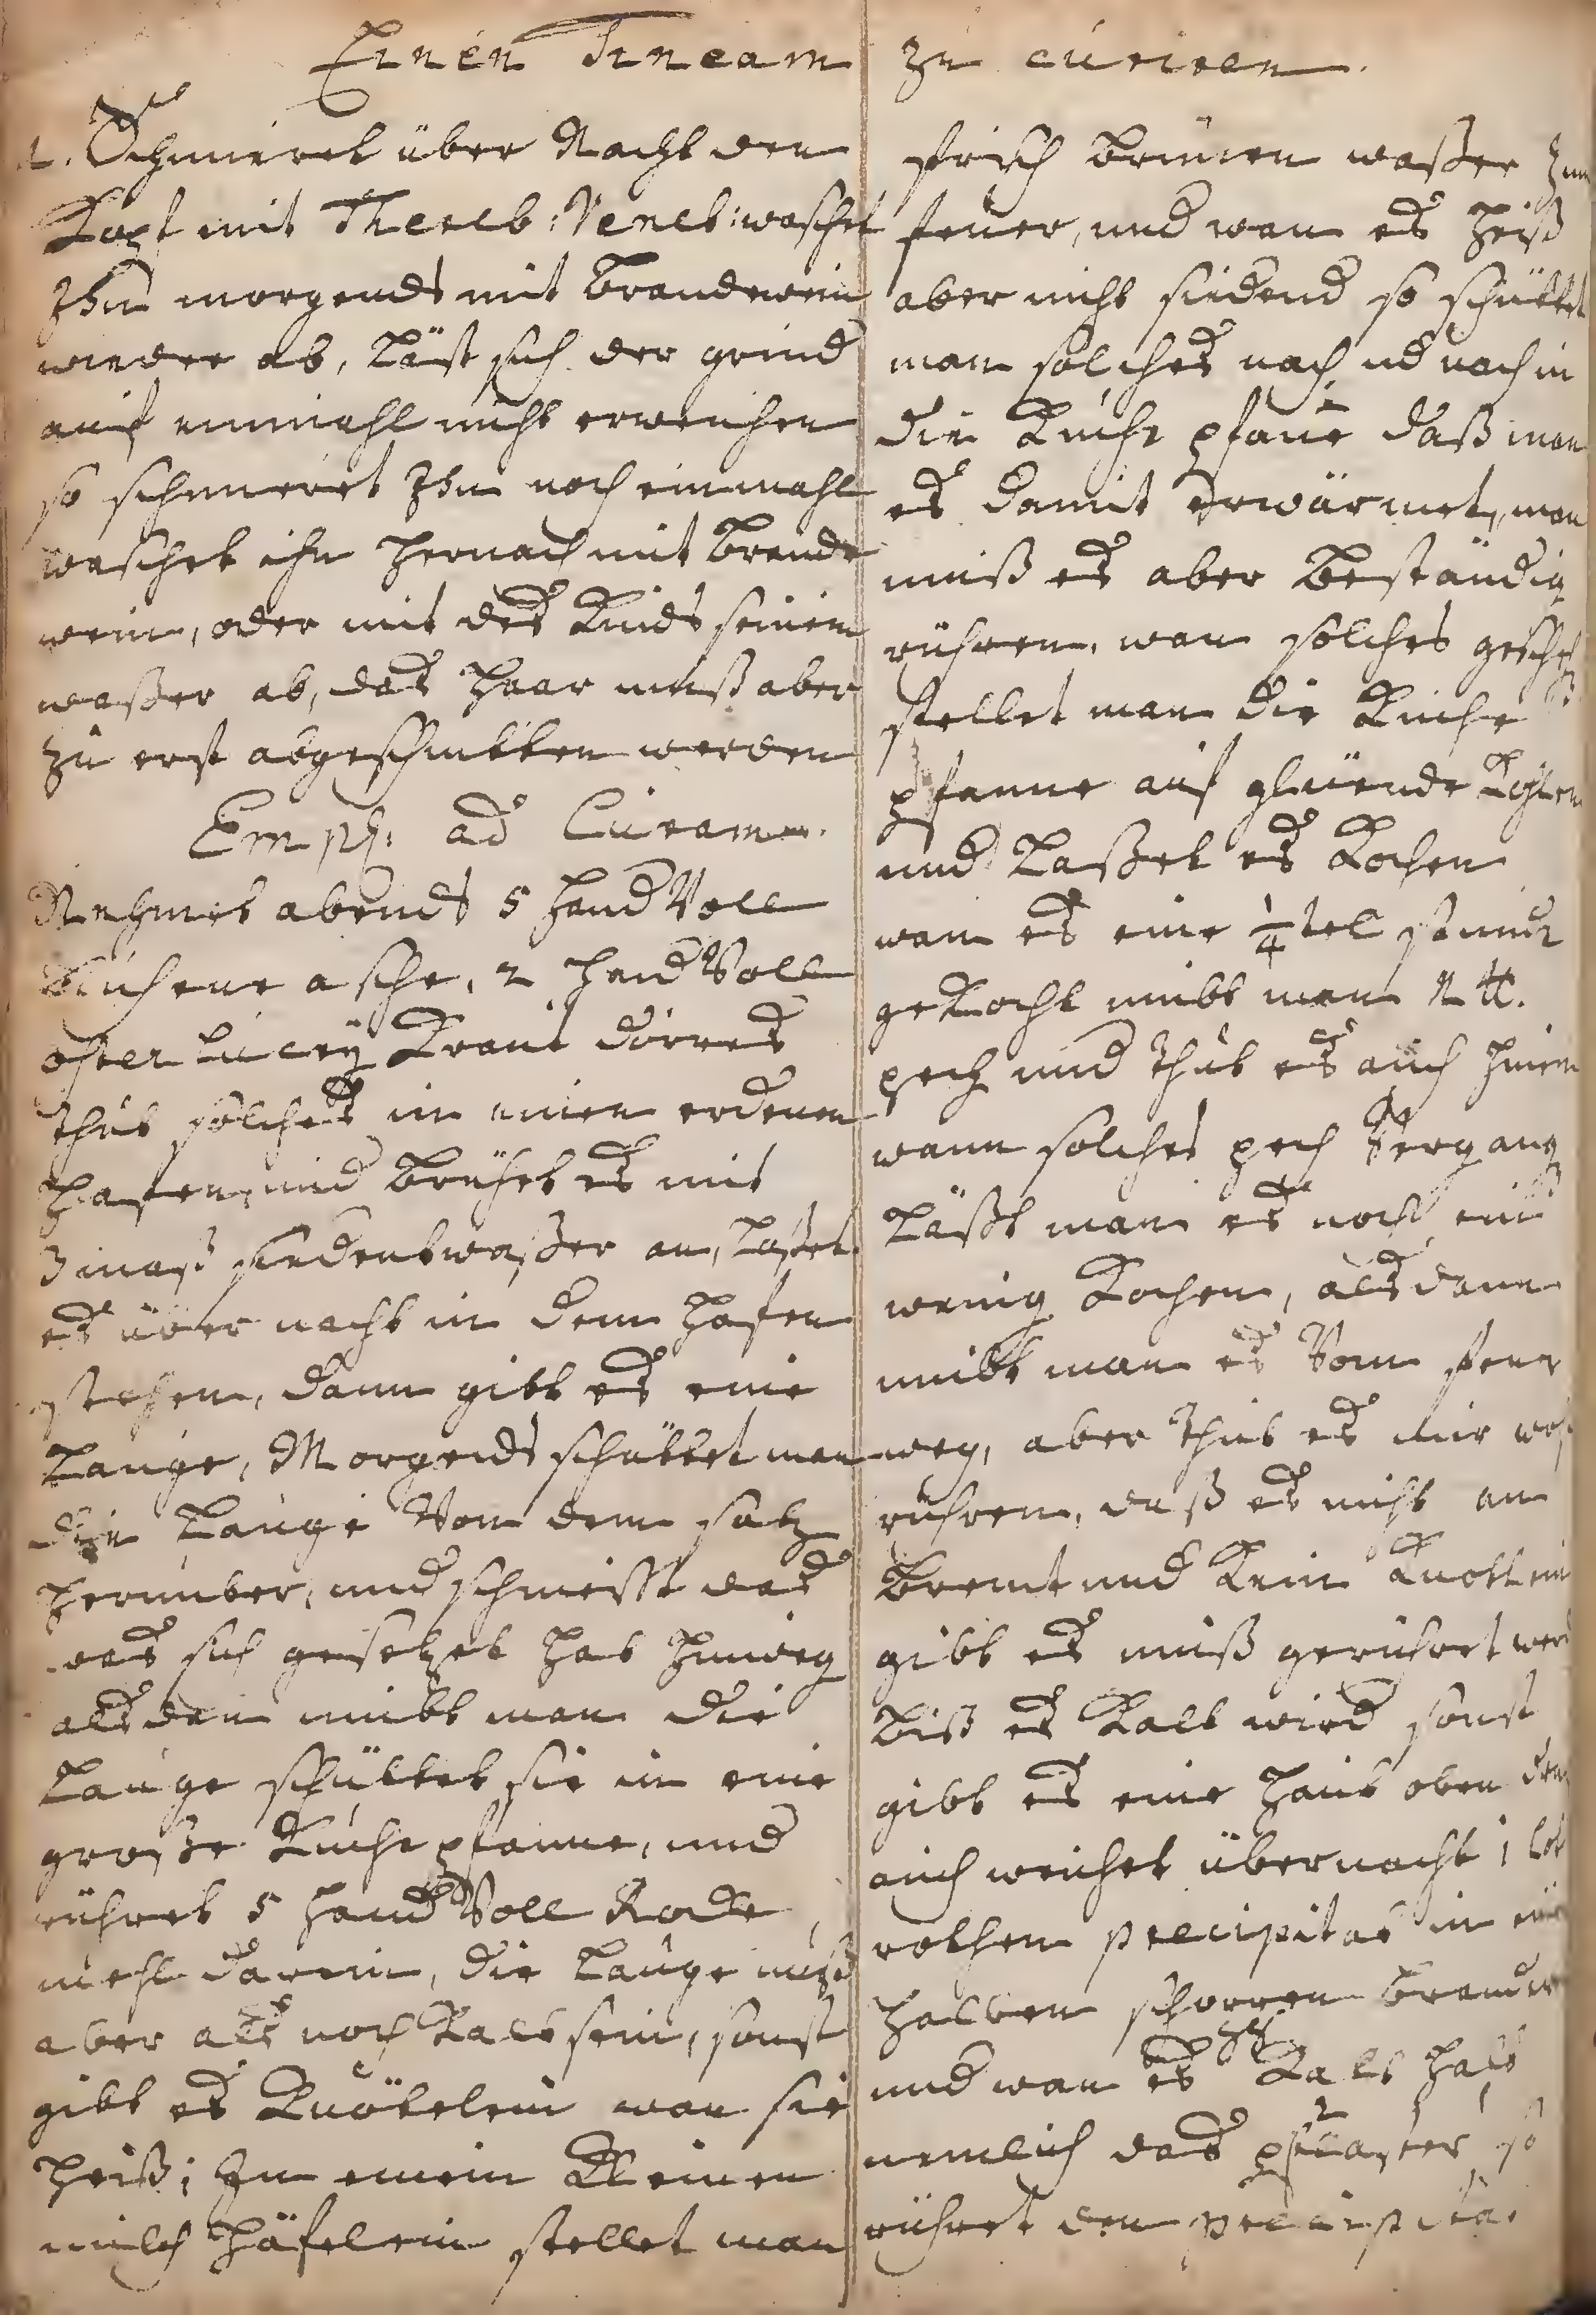 Einen Tineam zu curiren.
1. Schmieret über Nacht den
Kopf mit Thereb: Venet: waschet
Ihn morgends mit Brandewein
wieder ab, läst sich der grind
auf einmahl nicht erweichen
so schmieret Ihn noch einmahl
waschet ihn hernach mit Brande
wein, oder mit des Kinds seinem
waßer ab, das Haar muß aber
zu erst abgeschnitten werden
Empl: ad Curam.
Nehmet abends 5 Hand Voll
Buchene asche, 2 Hand Voll
osterlucey Kraut dörres
thut solches in einen erdenen
Hafen, und Brühet es mit
3 maß siedent waßer an, laßet
es über nacht in dem Hafen
stehen, dann gibt es eine
Lauge, Morgends schüttet man
die Lauge Von dem satz
herunter, und schmeisst das
was sich gesetzet hat hinweg
alsdan nimbt man die
Lauge schüttet sie in eine
große Kuche pfanne, und
rühret 5 Hand Voll Rocke
mehl darein, die Lauge muß
aber als noch Kalt sein, sonst
gibt es Knöttelein wan sie
heiß; In einem Kleinen
milch Häfelein stellet man
frisch Brunen waßer zum
feuer, und wan es heiß
aber nicht siedend so schüttet
man solches nach ud nach in
die Kuche pfane daß man
es damit erwärmet, man
muß es aber Beständig
rühren, wan solches gescheh
stellet man die Kuche
pfanne auf glüende Kohlen
und Laßet es Kochen
wan es eine 1/4 tel stunde
gekocht nimbt man 2 ℔.
pech und thut es auch hinein
wann solches pech Vergang
Läßt man es noch ein
wenig Kochen, alsdann
nimbt man es Vom feuer
weg, aber thut es nur woh
rühren, daß es nicht an
Brennt und Kein Knöttlein
gibt es muß gerühret werd
Biß es Kalt wird sonst
gibt es eine Haut oben
auch weichet über nacht 1 lot
rothen precipitat in
halben schoppen Brandw
und wan es Kalt
nemlich das pflaster so
rühret den precipitat